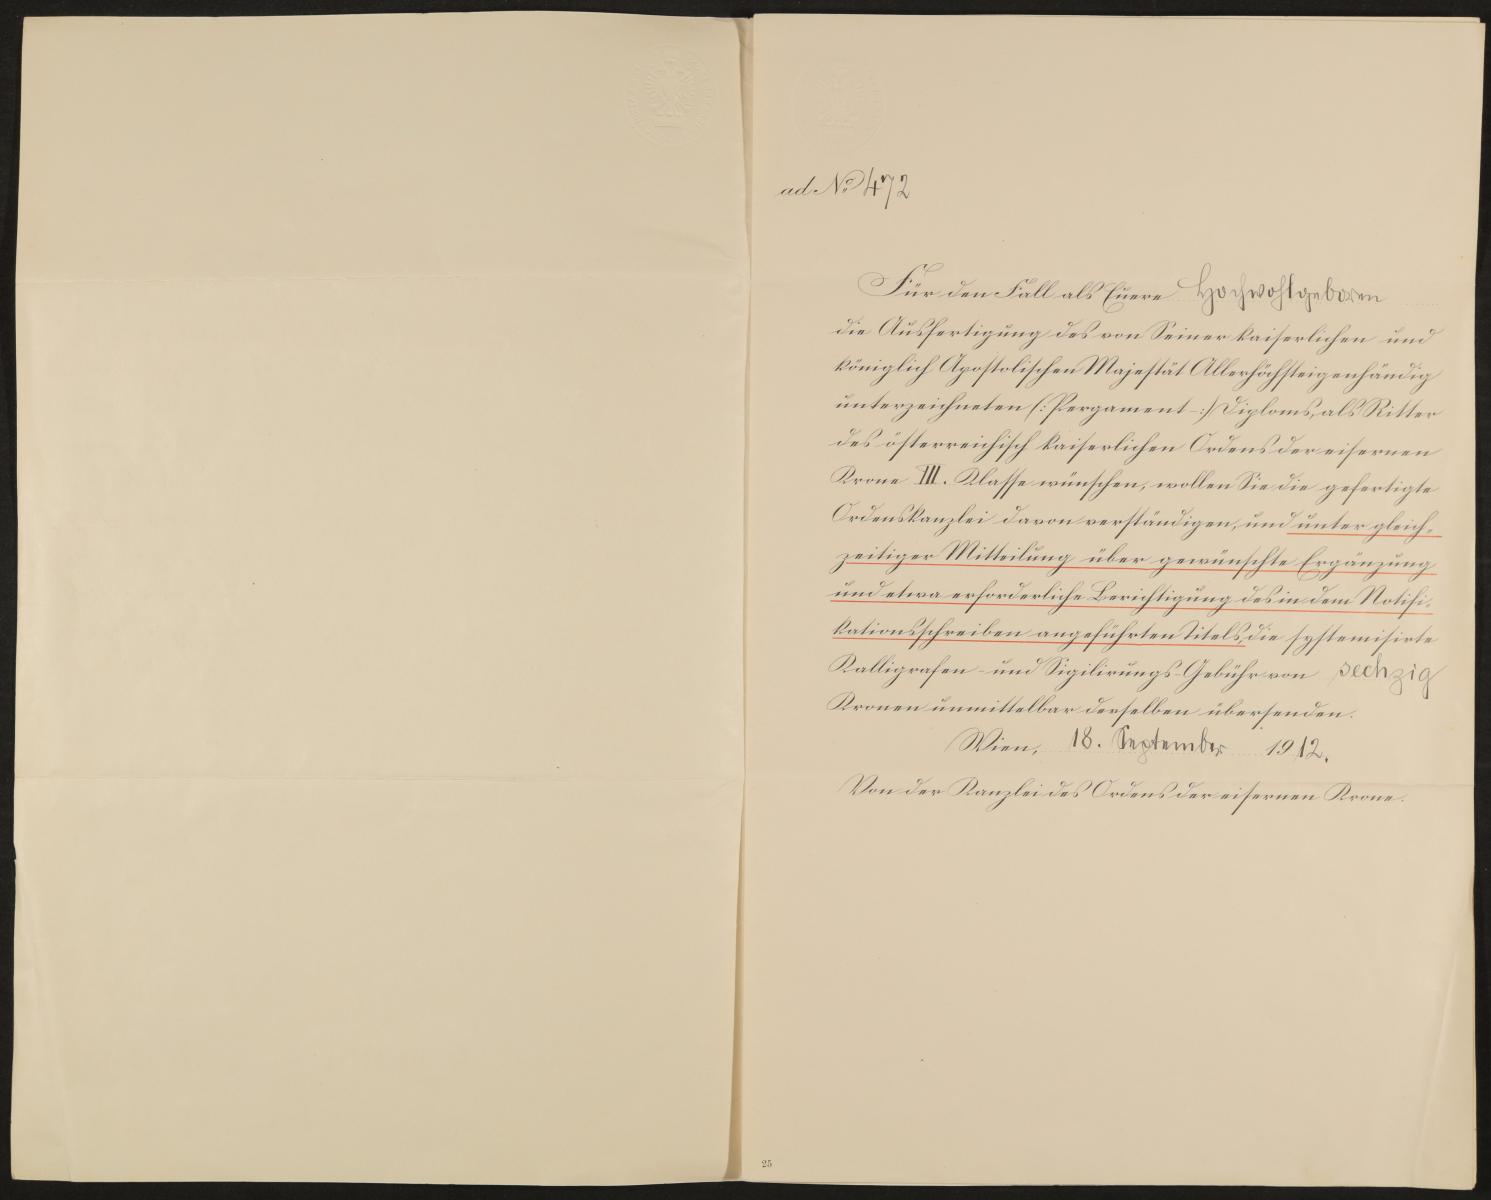 ad No 472
Für den Fall als Euere Hochwohlgeboren
die Ausfertigung des von Seiner kaiserlichen und
königlich Apostolischen Majestät Allerhöchsteigenhändig
unterzeichneten (: Pergament-:) Diploms, als Ritter
des österreichisch kaiserlichen Ordens der eisernen
Krone III. Klasse wünschen, wollen Sie die gefertigte
Ordenskanzlei davon verständigen, und unter gleich-
zeitiger Mitteilung über gewünschte Ergänzung
und etwa erforderliche Berichtigung des in dem Notifi-
kationsschreiben angeführten Titels, die systemisirte
Kalligrafen- und Sigilirungs-Gebühr von sechzig
Kronen unmittelbar derselben übersenden.
Wien, 18. September 1912.
Von der Kanzlei des Ordens der eisernen Krone.
25